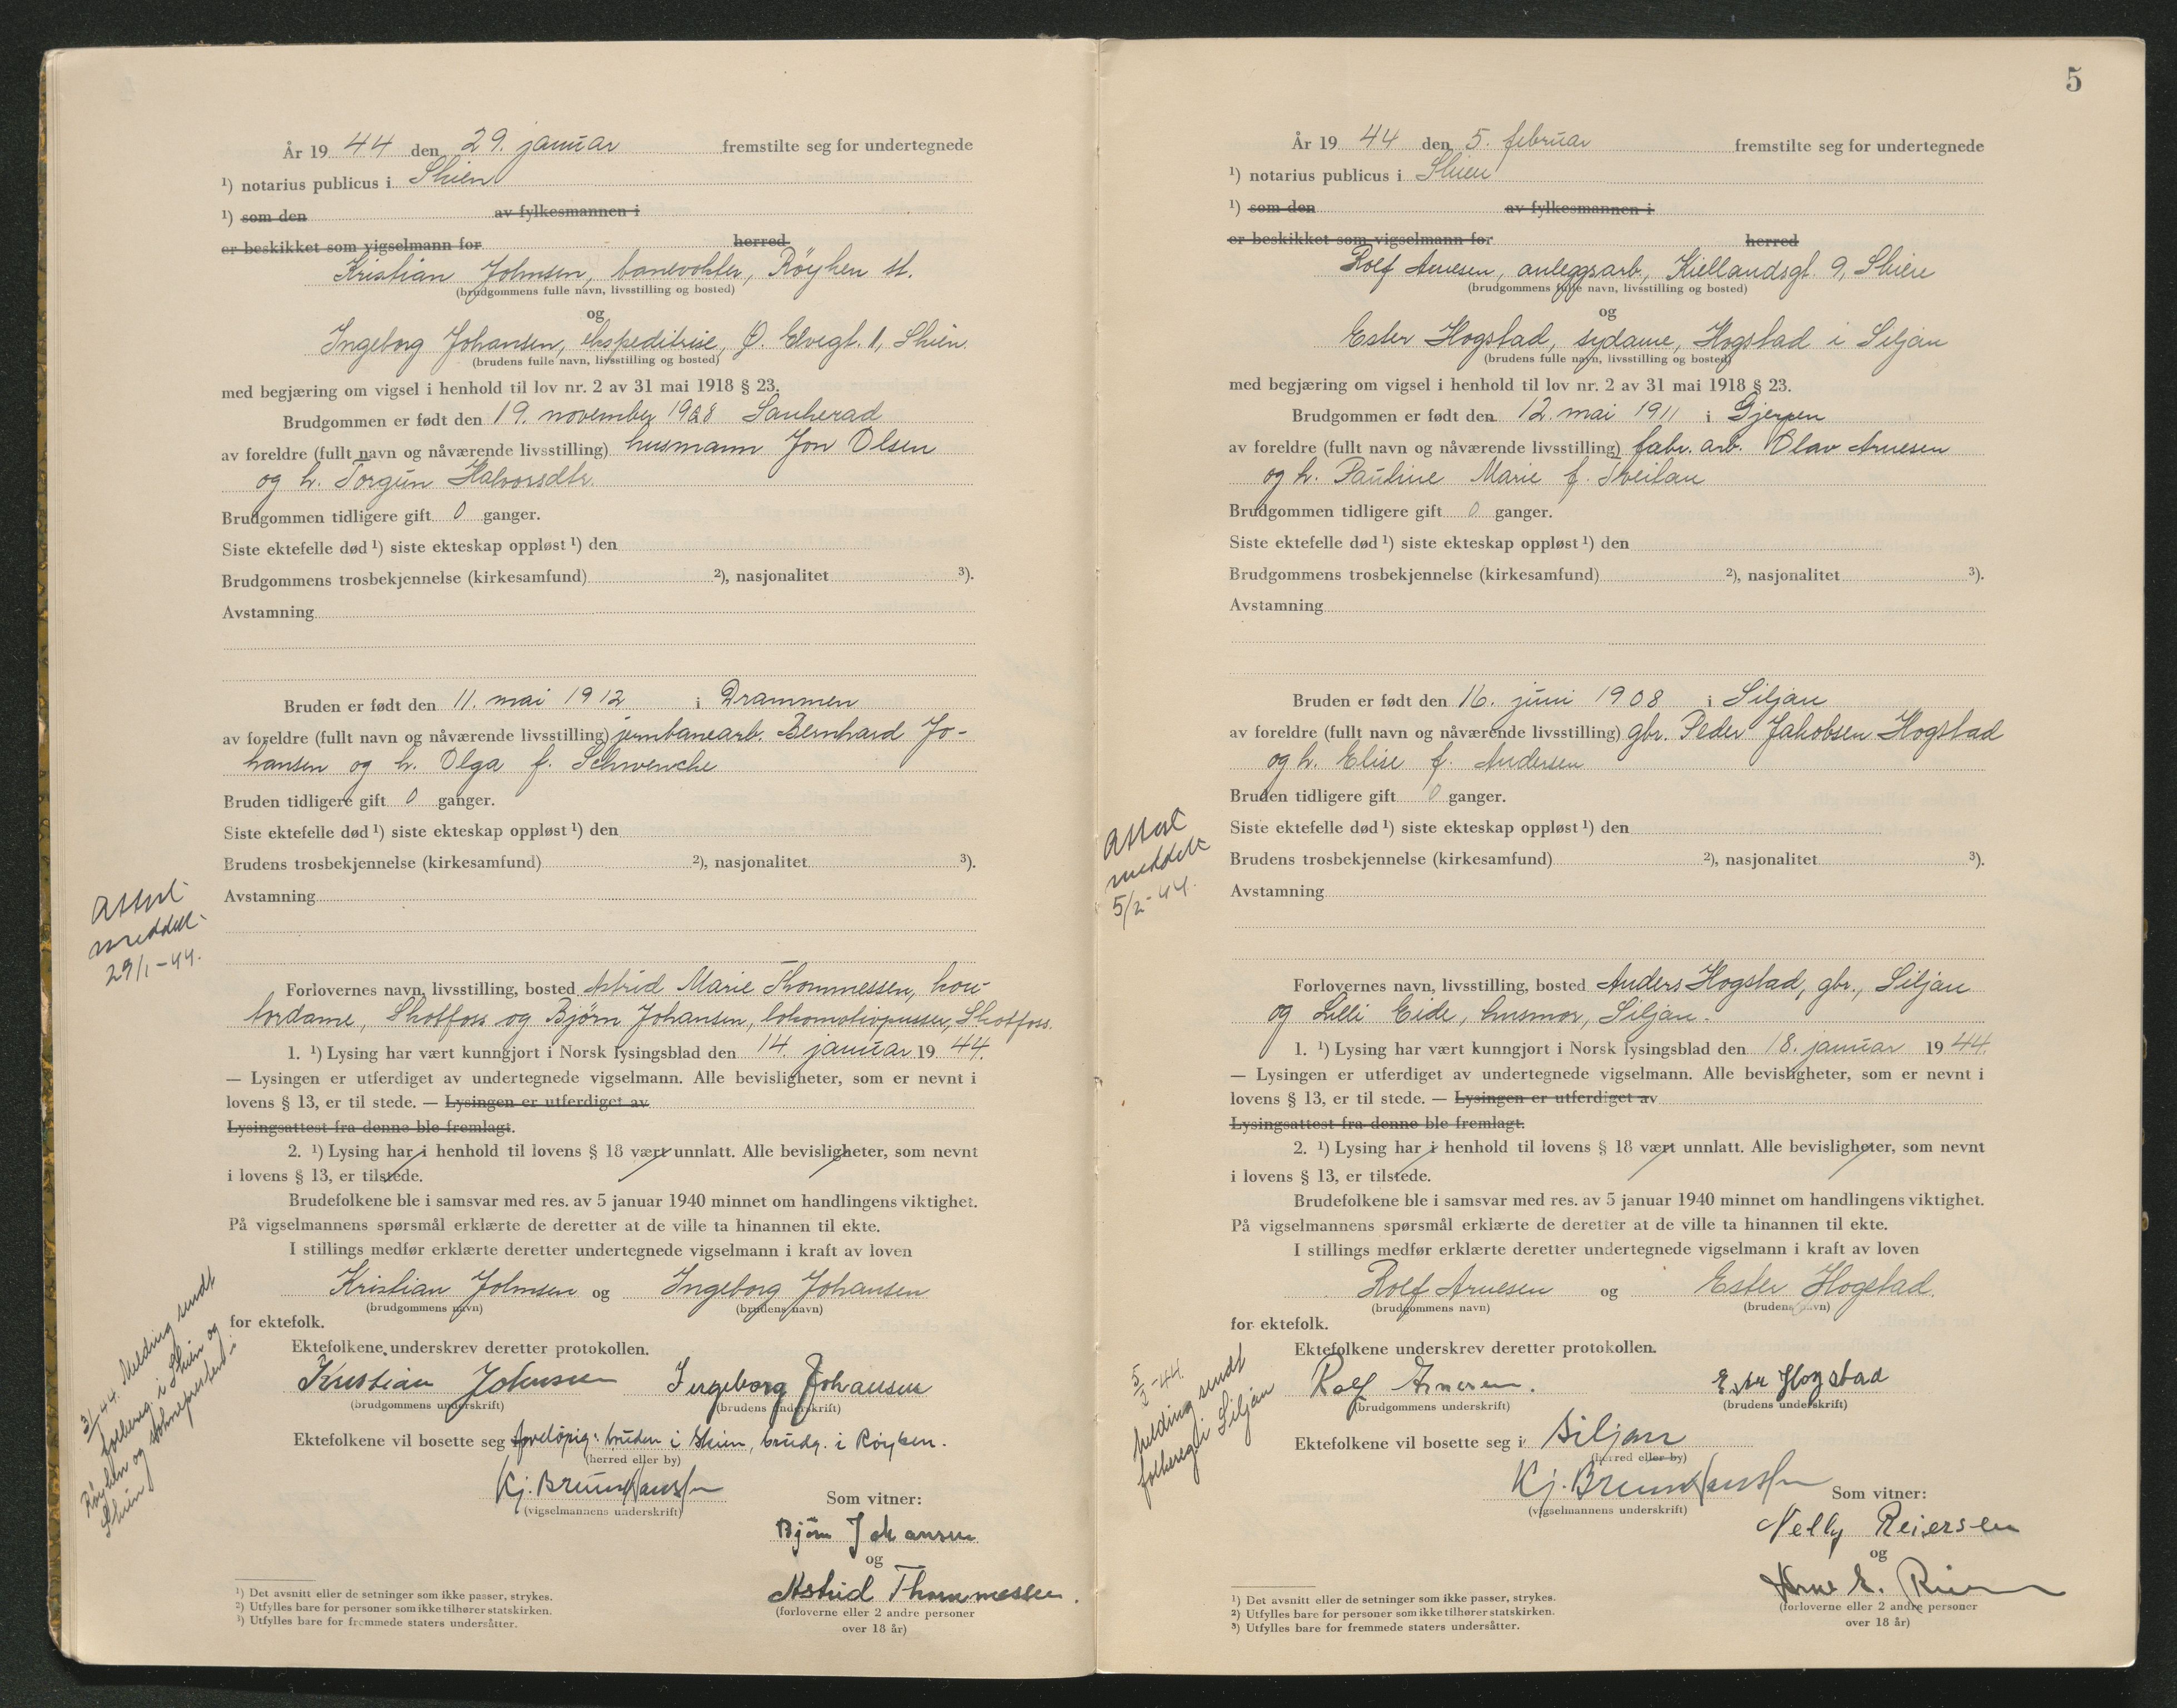 År 19 44 den 29. januar fremstilte seg for undertegnede
¹) notarius publicus i Skien
¹) som den av fylkesmannen i
er beskikket som vigselmann for herred
Kristian Johnsen, banevokter, Røyken st.
(brudgommens fulle navn, livsstilling og bosted)
og
Ingeborg Johansen, ekspeditrise, Ø. Elvegt. 1, Skien.
(brudens fulle navn, livsstilling og bosted)
med begjæring om vigsel i henhold til lov nr. 2 av 31 mai 1918 § 23.
Brudgommen er født den 19. november Sauherad
av foreldre (fullt navn og nåværende livsstilling) husmann Jon Olsen
og h. Torgun Halvorsdtr.
Brudgommen tidligere gift 0 ganger.
Siste ektefelle død ¹) siste ekteskap oppløst ¹) den
Brudgommens trosbekjennelse (kirkesamfund) ²), nasjonalitet ³).
Avstamning
Bruden er født den 11. mai 1912 i Drammen
av foreldre (fullt navn og nåværende livsstilling) jernbanearb. Bernhard Jo-
hansen og h. Olga f. Schwencke
Bruden tidligere gift 0 ganger.
Siste ektefelle død ¹) siste ekteskap oppløst ¹) den
Brudens trosbekjennelse (kirkesamfund) ²), nasjonalitet ³).
Avstamning
Attest
meddelt
29/1-44.
Forlovernes navn, livsstilling, bosted Astrid Marie Thommessen, kon-
tordame, Skotfoss og Bjørn Johansen, lokomotivpusser, Skotfoss.
1. ¹) Lysing har vært kunngjort i Norsk lysingsblad den 14. januar 19 44.
— Lysingen er utferdiget av undertegnede vigselmann. Alle bevisligheter, som er nevnt i
lovens § 13, er til stede. — Lysingen er utferdiget av
Lysingsattest fra denne ble fremlagt.
2. ¹) Lysing har i henhold til lovens § 18 vært unnlatt. Alle bevisligheter, som nevnt
i lovens § 13, er tilstede.
Brudefolkene ble i samsvar med res. av 5 januar 1940 minnet om handlingens viktighet.
På vigselmannens spørsmål erklærte de deretter at de ville ta hinannen til ekte.
I stillings medfør erklærte deretter undertegnede vigselmann i kraft av loven
Kristian Johnsen og Ingeborg Johansen
(brudgommens navn) (brudens navn)
for ektefolk.
Ektefolkene underskrev deretter protokollen.
Kristian Johnsen Ingeborg Johansen
(brudgommens underskrift) (brudens underskrift)
Ektefolkene vil bosette seg foreløpig: bruden i Skien, brudg. i Røyken.
(herred eller by)
Kj. Bruun Hanssen
(vigselmannens underskrift)
Som vitner:
Bjørn Johansen
og
Astrid Thommessen.
(forloverne eller 2 andre personer
over 18 år)
44. Melding sendt
folkereg. i Skien og
Røyken og soknepresten i
Skien
¹) Det avsnitt eller de setninger som ikke passer, strykes.
²) Utfylles bare for personer som ikke tilhører statskirken.
³) Utfylles bare for fremmede staters undersåtter.
5
År 19 44 den 5. februar fremstilte seg for undertegnede
¹) notarius publicus i Skien
¹) som den av fylkesmannen i
er beskikket som vigselmann for herred
Rolf Arnesen, anleggsarb., Kiellandsgt. 9, Skien
(brudgommens fulle navn, livsstilling og bosted)
og
Ester Hogstad, sydame, Hogstad i Siljan
(brudens fulle navn, livsstilling og bosted)
med begjæring om vigsel i henhold til lov nr. 2 av 31 mai 1918 § 23.
Brudgommen er født den 12. mai 1911 i Gjerpen
av foreldre (fullt navn og nåværende livsstilling) fabr. arb. Olav Arnesen
og h. Pauline Marie f. Tveitan
Brudgommen tidligere gift 0 ganger.
Siste ektefelle død ¹) siste ekteskap oppløst ¹) den
Brudgommens trosbekjennelse (kirkesamfund) ²), nasjonalitet ³).
Avstamning
Bruden er født den 16. juni 1908 i Siljan
av foreldre (fullt navn og nåværende livsstilling) gbr. Peder Jakobsen Hogstad
og h. Elise f. Andersen
Bruden tidligere gift 0 ganger.
Siste ektefelle død ¹) siste ekteskap oppløst ¹) den
Brudens trosbekjennelse (kirkesamfund) ²), nasjonalitet ³).
Avstamning
Attest
meddelt
5/2-44.
Forlovernes navn, livsstilling, bosted Anders Hogstad, gbr., Siljan
og Lilli Eide, husmor, Siljan.
1. ¹) Lysing har vært kunngjort i Norsk lysingsblad den 18. januar 19 44.
— Lysingen er utferdiget av undertegnede vigselmann. Alle bevisligheter, som er nevnt i
lovens § 13, er til stede. — Lysingen er utferdiget av
Lysingsattest fra denne ble fremlagt.
2. ¹) Lysing har i henhold til lovens § 18 vært unnlatt. Alle bevisligheter, som nevnt
i lovens § 13, er tilstede.
Brudefolkene ble i samsvar med res. av 5 januar 1940 minnet om handlingens viktighet.
På vigselmannens spørsmål erklærte de deretter at de ville ta hinannen til ekte.
I stillings medfør erklærte deretter undertegnede vigselmann i kraft av loven
Rolf Arnesen og Ester Hogstad.
(brudgommens navn) (brudens navn)
for ektefolk.
Ektefolkene underskrev deretter protokollen.
Rolf Arnesen. Ester Hogstad
(brudgommens underskrift) (brudens underskrift)
Ektefolkene vil bosette seg i Siljan
(herred eller by)
Kj. Bruun Hanssen
(vigselmannens underskrift)
Som vitner:
Nelly Reiersen
og
Arne E.
(forloverne eller 2 andre personer
over 18 år)
5/2-44.
Melding sendt
folkereg. i Siljan
¹) Det avsnitt eller de setninger som ikke passer, strykes.
²) Utfylles bare for personer som ikke tilhører statskirken.
³) Utfylles bare for fremmede staters undersåtter.